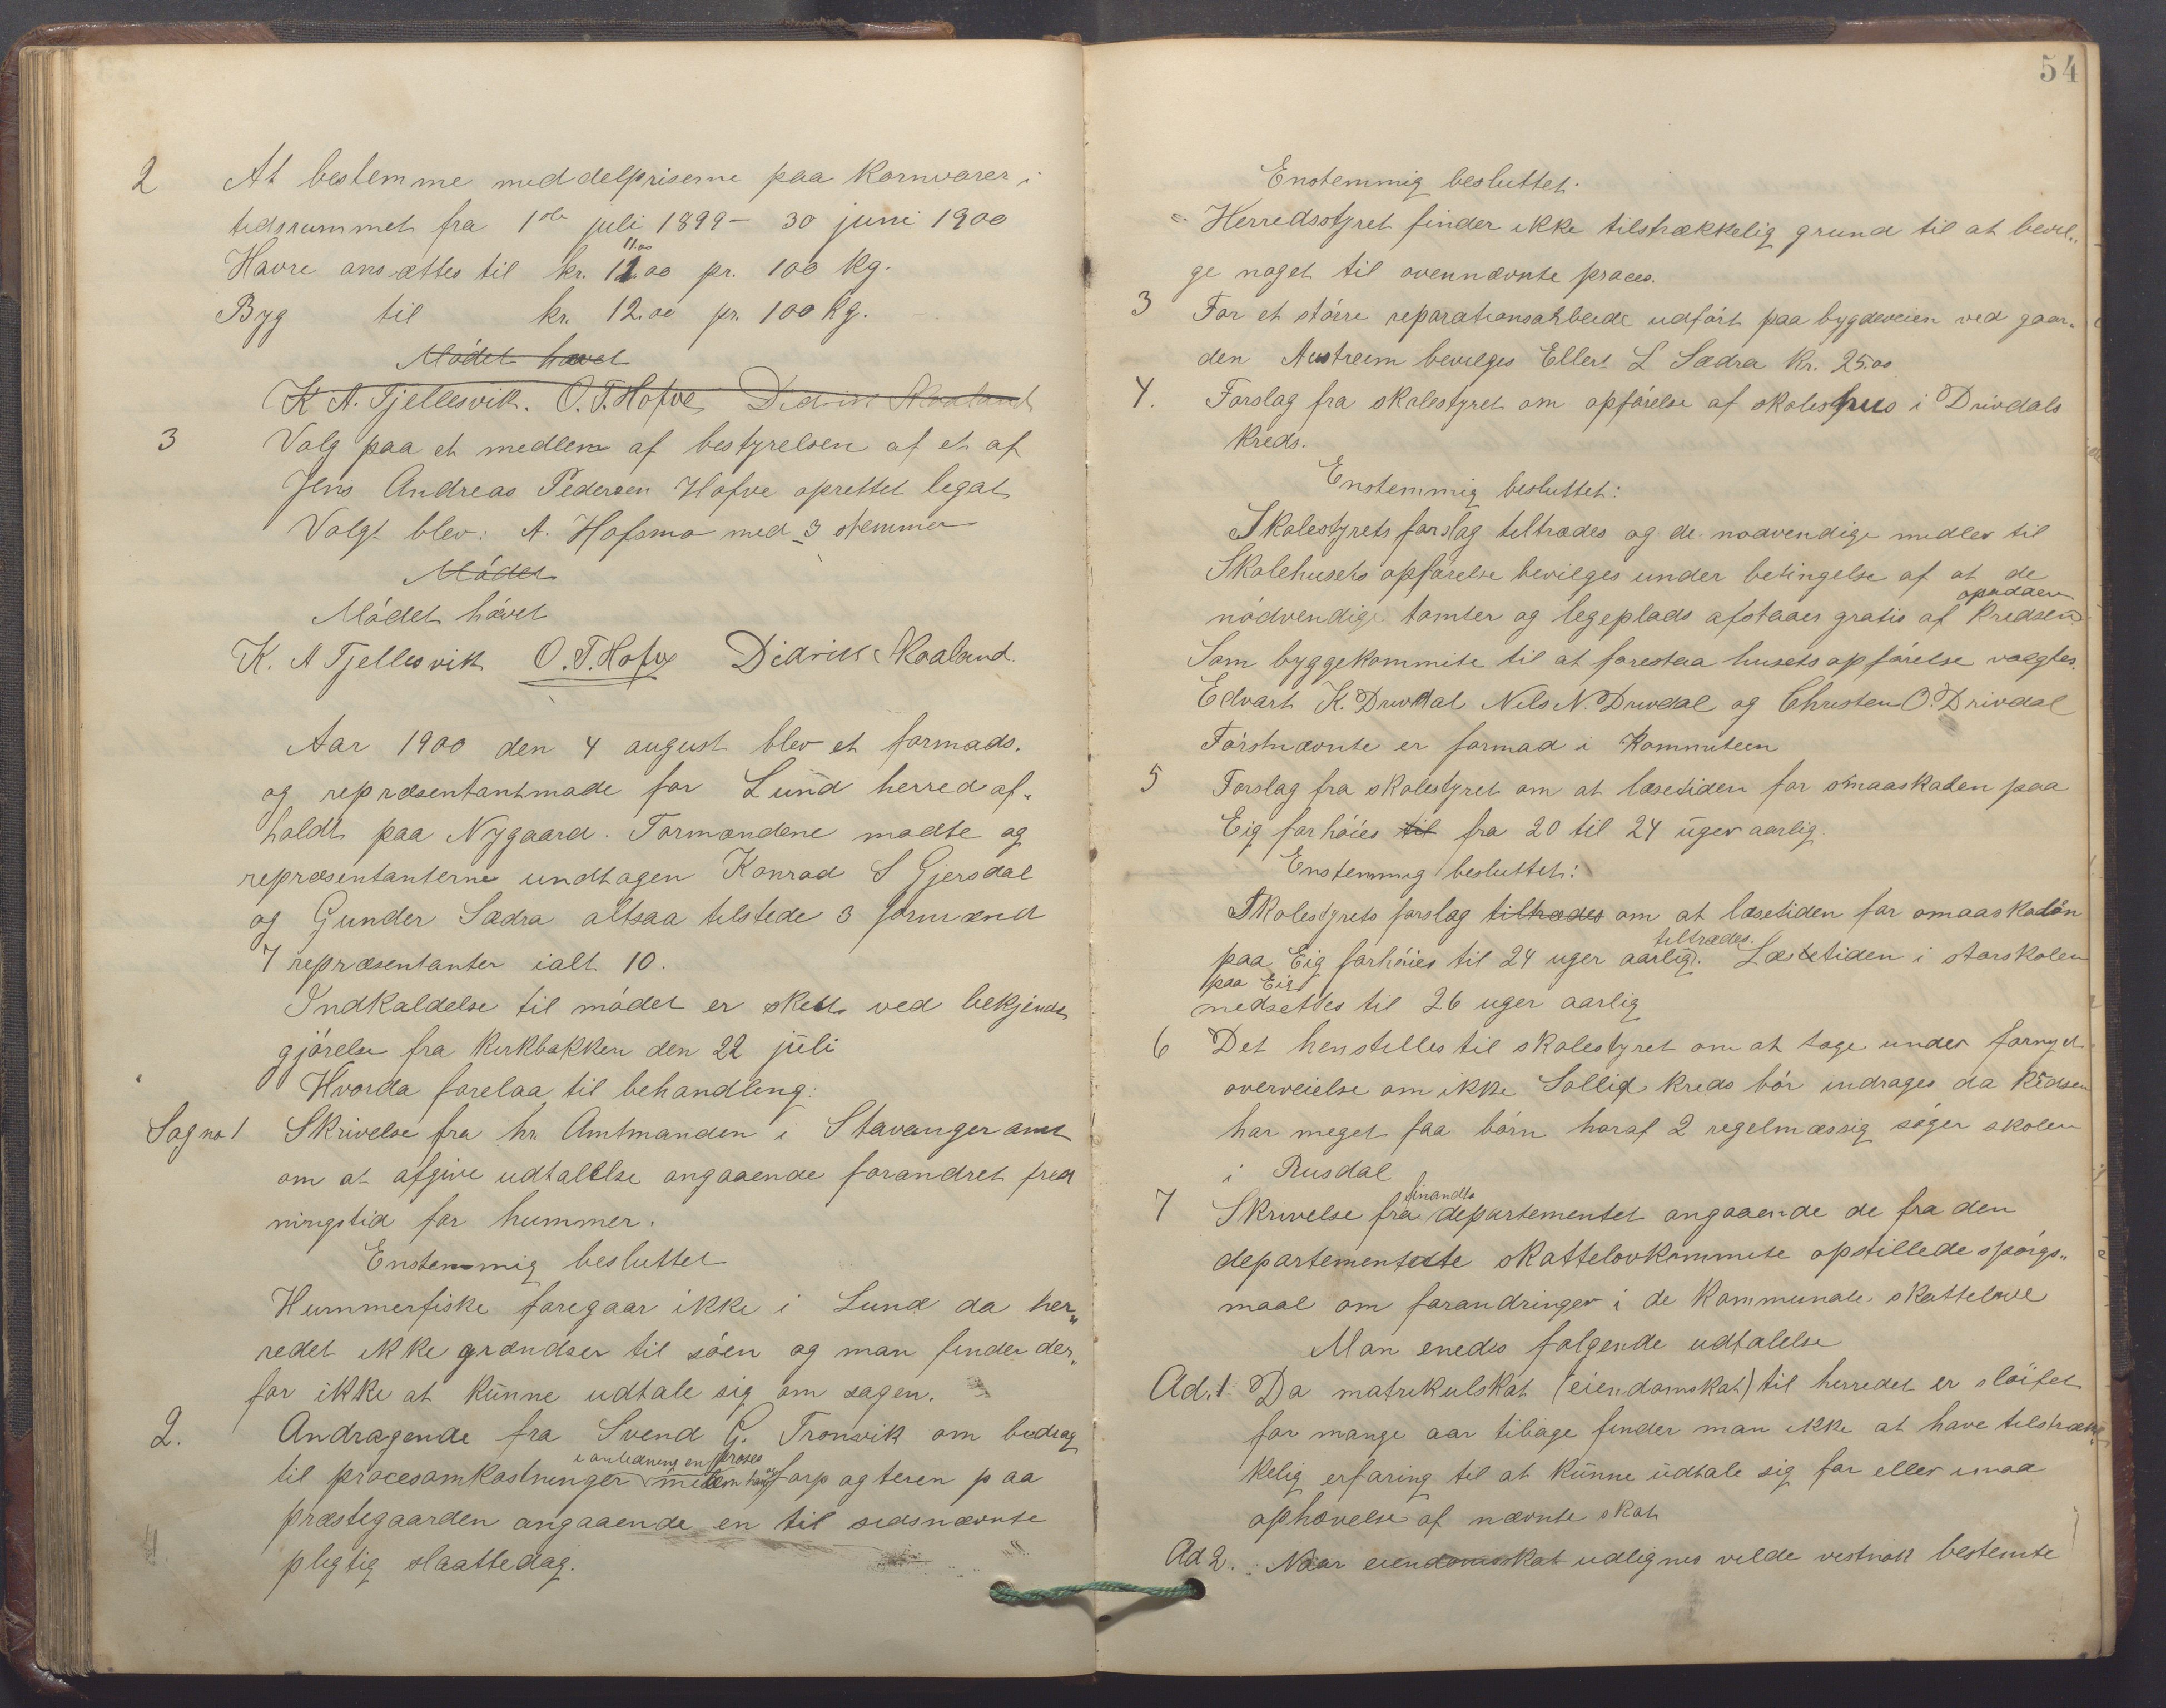 2 At bestemme middelpriserne paa kornvarer i
tidsrummet fra 1ste juli 1899 - 30 juni 1900
11.00
Havre ansættes til kr. 11.00 pr. 100 kg.
Byg til kr. 12.00 pr. 100 kg.
Mödet hævet
K A. Tjellesvik. O.T. Hofve Didrik Skaaland
3 Valg paa et medlem af bestyrelsen af et af
Jens Andreas Pedersen Hofve oprettet legat
Valgt blev: A. Hofsmo med 3 stemmer
Mödet
Mödet hævet
K. A Tjellesvik O.T. Hofve Didrik Skaaland.
Aar 1900 den 4 august blev et formads.
og repræsentantmøde for Lund herred af„
holdt paa Nygaard. Formændene mødte og
repræsentanterne undtagen Konrad S Gjersdal
og Gunder Sædra altsaa tilstede 3 formænd
7 repræsentanter ialt 10.
Indkaldelse til mødet er skett ved bekjendt
gjörelse fra kirkbakken den 22 juli
Hvorda forelaa til behandling:
Sag no 1 Skrivelse fra hr. Amtmanden i Stavanger amt
om at afgive udtalelse angaaende forandret fred
ningstid for hummer.
Enstemmig besluttet
Hummerfiske foregaar ikke i Lund da her„
redet ikke grændser til söen og man finder der„
for ikke at kunne udtale sig om sagen.
2. Andragende fra Svend G. Tronvik om bidrag
i anledning en proses
til procesomkostninger mellem ham og forpagteren paa
præstegaarden angaaende en til sidsnævnte
pligtig slaattedag.
54
Enstemmig besluttet.
Herredsstyret finder ikke tilstrækkelig grund til at bevil„
ge noget til ovennævnte proces.
3 For et större reparationsarbeide udfört paa bygdeveien ved gaar„
den Austreim bevilges Ellert L Sædra kr. 25.00
4. Forslag fra skolestyret om opförelse af skoleshus i Drivdals
kreds.
Enstemmig besluttet:
Skolestyrets forslag tiltrædes og de nødvendige midler til
Skolehusets opførelse bevilges under betingelse af at de
opsiddere
nödvendige tomter og legeplads afstaaes gratis af kredsen
Som byggekommite til at forestaa husets opförelse valgtes.
Edvart K. Drivdal Nils N. Drivdal og Christen O. Drivdal
Förstnævnte er formad i kommiteen
5 Forslag fra skolestyret om at læsetiden for smaaskolen paa
Eig forhöies til fra 20 til 24 uger aarlig.
Enstemmig besluttet:
Skolestyrets forslag tiltrædes om at læsetiden for smaaskolen
tiltrædes.
paa Eig forhöies til 24 uger aarlig. Læsetiden i storskolen
paa Eig
nedsættes til 26 uger aarlig
6 Det henstilles til skolestyret om at tage under fornyet
overveielse om ikke Sollid kreds bör indrages da kredsen
har meget faa börn horaf 2 regelmæssig söger skolen
i Rusdal
finandts
7 Skrivelse fra departementet angaaende de fra den
departementale skattelovkommite opstillede spörgs„
maal om forandringer i de kommunale skattelove
Man enedes folgende udtalelse
Ad. 1 Da matrikulskat (eiendomskat) til herredet er slöifet
for mange aar tibage finder man ikke at have tilstræk„
kelig erfaring til at kunne udtale sig for eller imod
ophævelse af nævnte skat
Ad 2. Naar eiendomsskat udlignes vilde vistnok bestemte